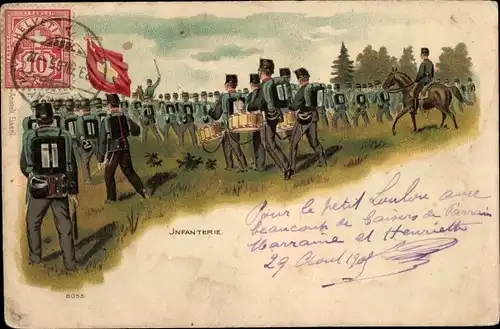 HELVETIA
10
JNFANTERIE.
Pour le petit Loulou avec
beaucoup de baisers de Parrain
Marraine et Henriette
29 Aout 190
6055